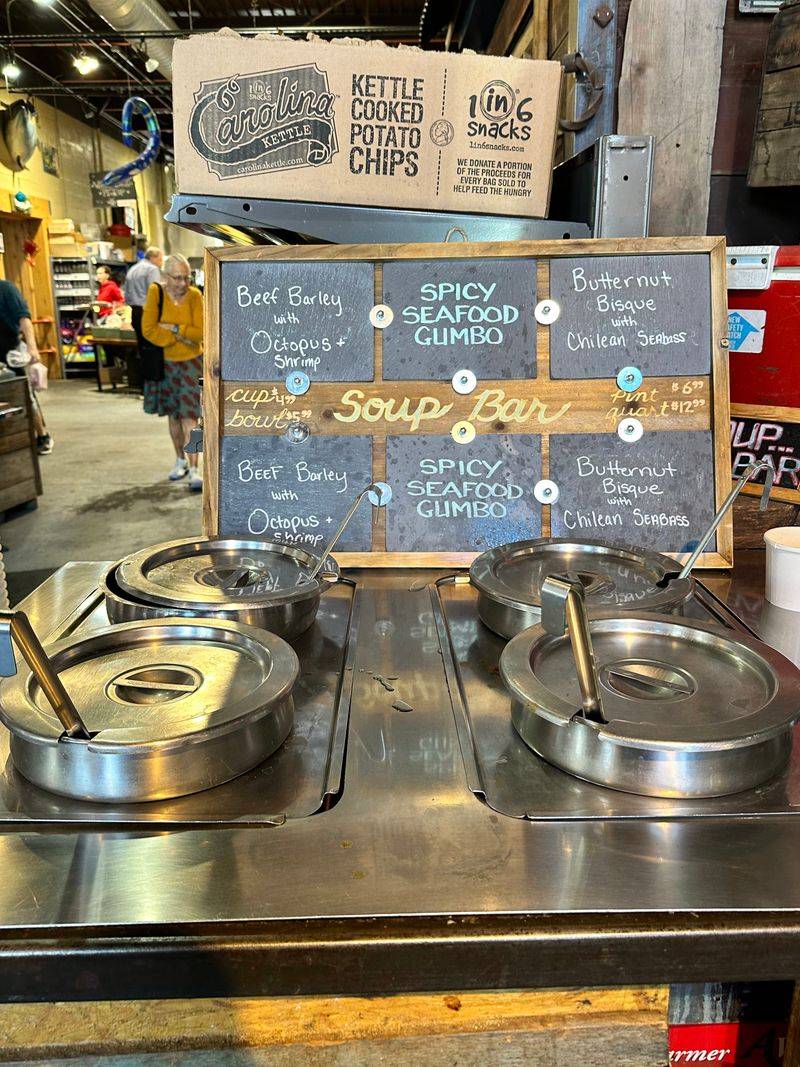 1 in 6
snacks
Carolina
KETTLE
carolinakettle.com
KETTLE
COOKED
POTATO
CHIPS
1 in 6
snacks
1in6snacks.com
WE DONATE A PORTION
OF THE PROCEEDS FOR
EVERY BAG SOLD TO
HELP FEED THE HUNGRY
Beef Barley
with
Octopus +
Shrimp
SPICY
SEAFOOD
GUMBO
Butternut
Bisque
with
Chilean SeaBass
cup $4.99
bowl $5.99
Soup Bar
Pint $6.99
quart $12.99
BEEF Barley
with
Octopus +
Shrimp
SPICY
SEAFOOD
GUMBO
Butternut
Bisque
with
Chilean SEABASS
NEW
UP...
BAR
armer